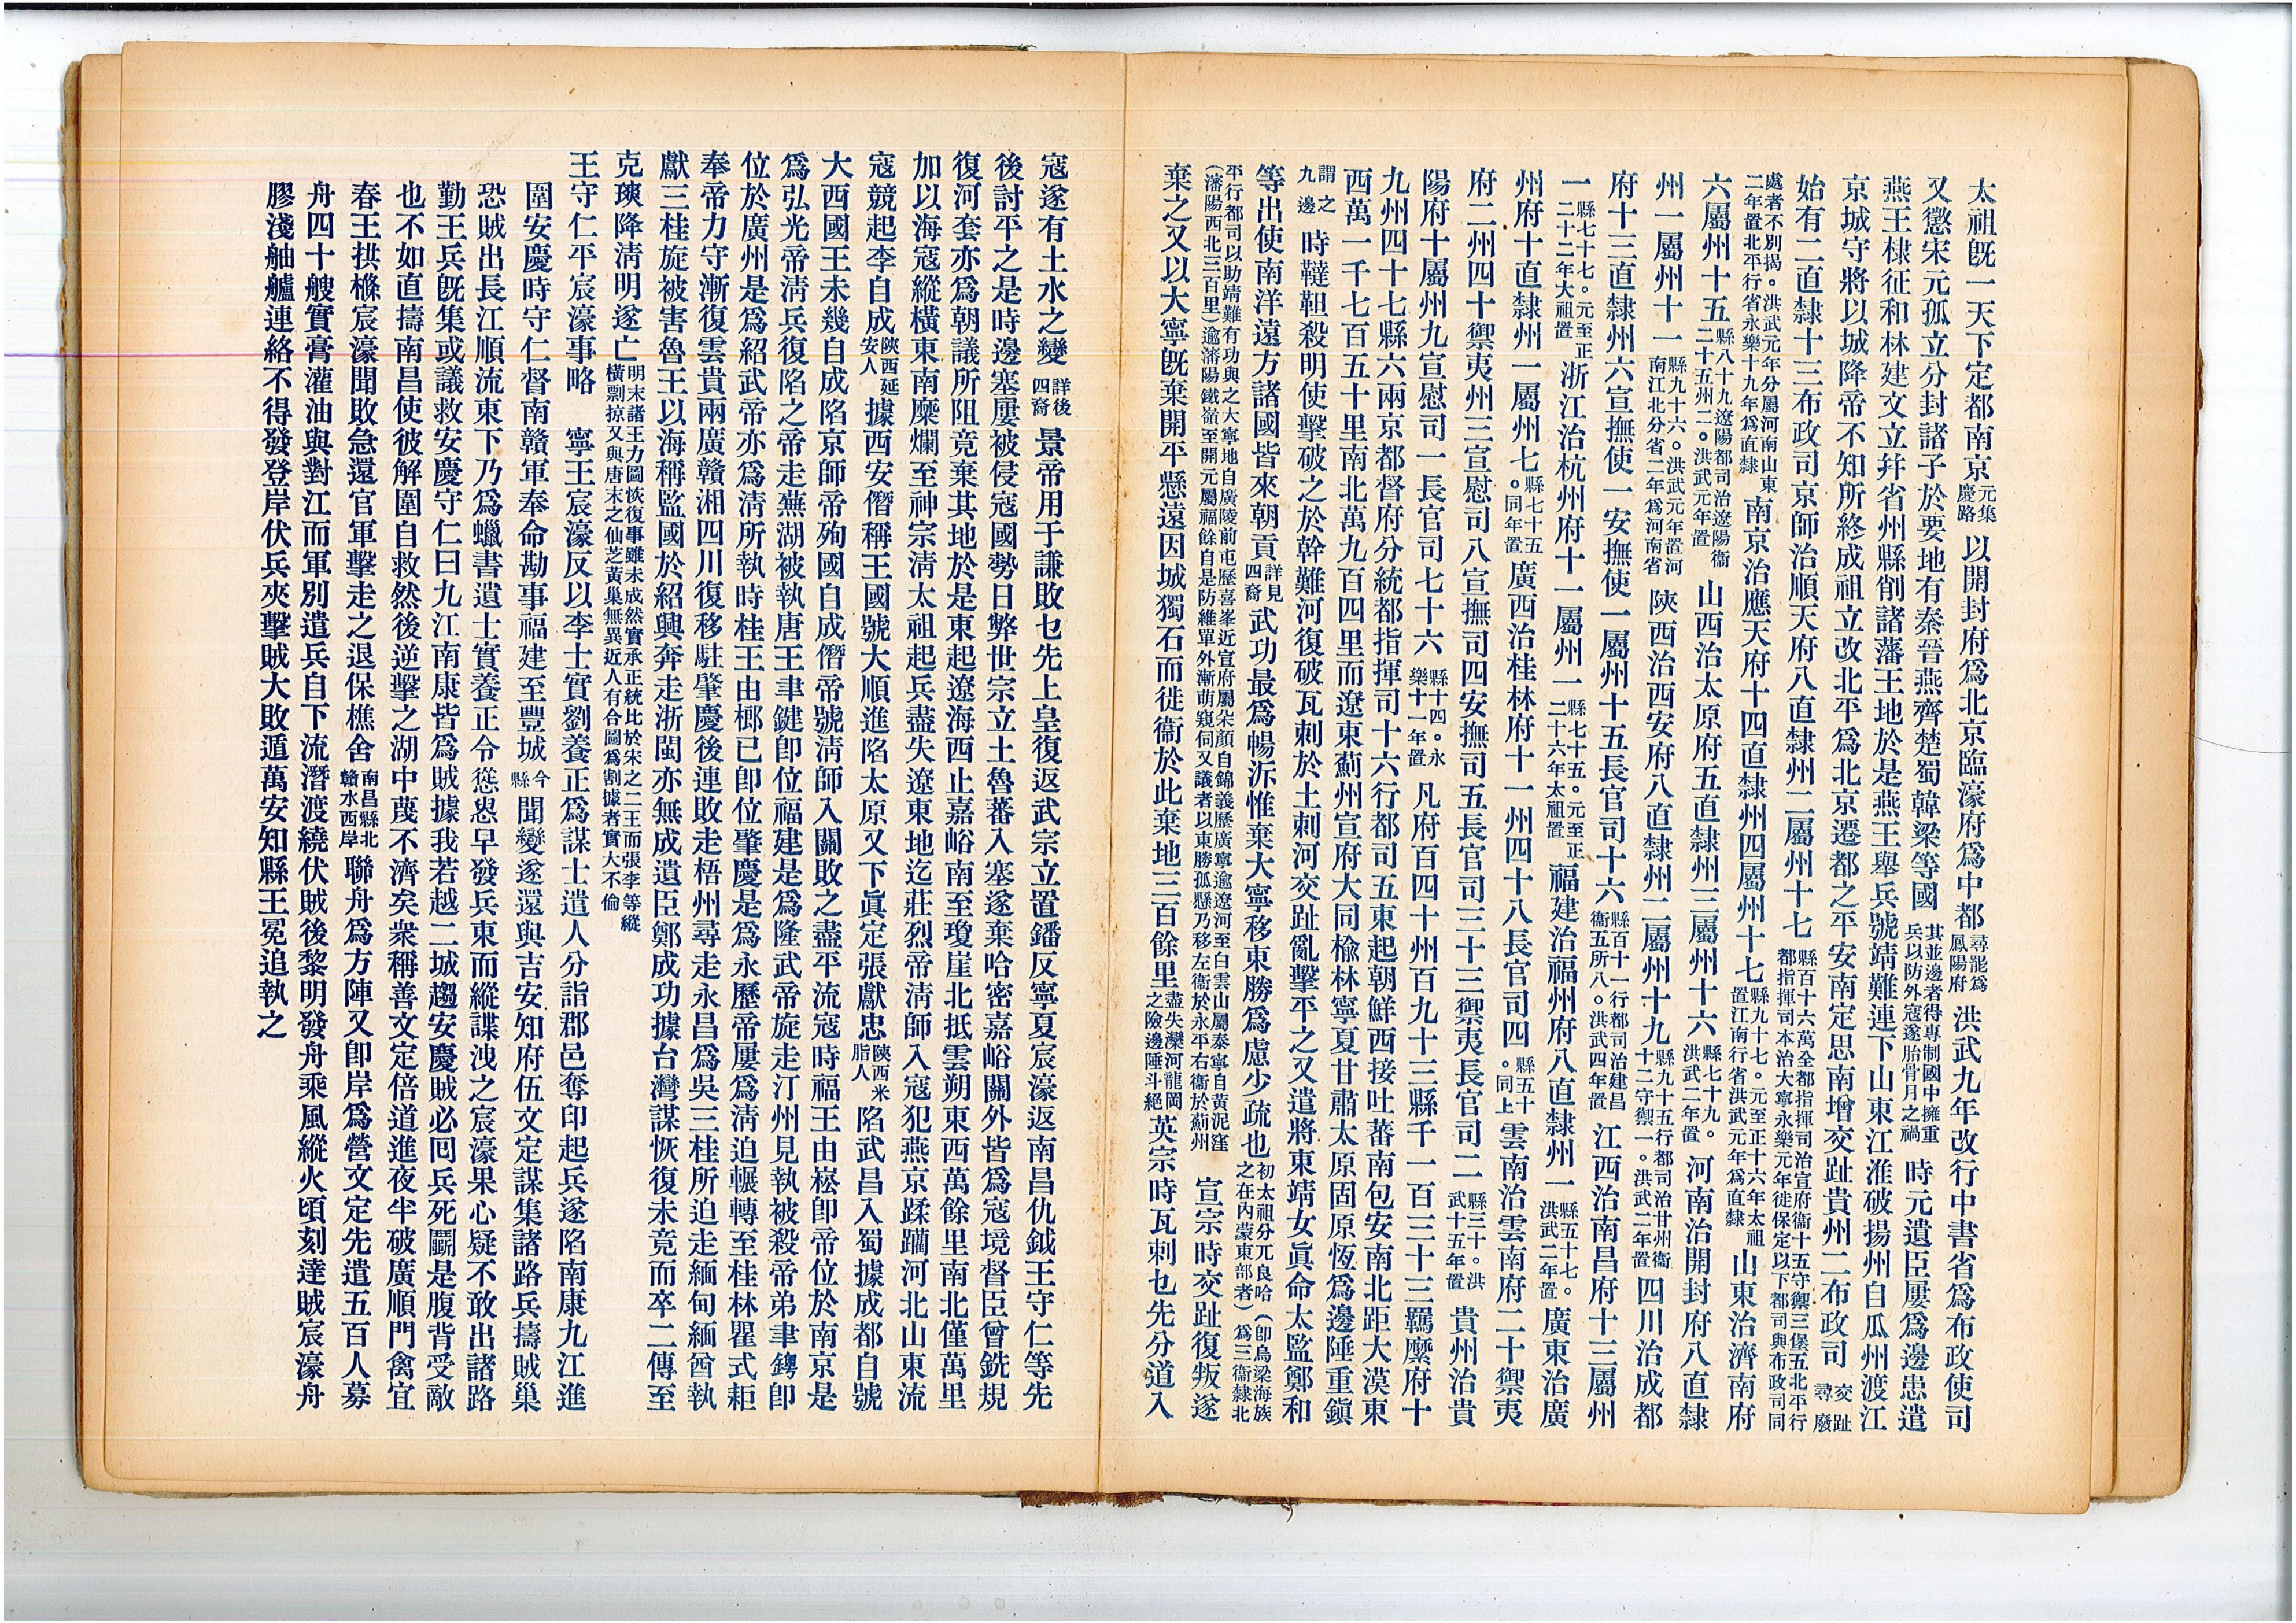 太祖旣一天下定都南京元集慶路以開封府爲北京臨濠府爲中都尋罷爲鳳陽府洪武九年改行中書省爲布政使司
又懲宋元孤立分封諸子於要地有秦晉燕齊楚蜀韓梁等國其並邊者得專制國中擁重兵以防外寇遂胎骨月之禍時元遺臣屢爲邊患遣
燕王棣征和林建文立幷省州縣削諸藩王地於是燕王舉兵號靖難連下山東江淮破揚州自瓜州渡江
京城守將以城降帝不知所終成祖立改北平爲北京遷都之平安南定思南增交趾貴州二布政司交趾尋廢
始有二直隸十三布政司京師治順天府八直隸州二屬州十七縣百十六萬全都指揮司治宣府衞十五守禦三堡五北平行都指揮司本治大寧永樂元年徙保定以下都司與布政司同
處者不別揭。洪武元年分屬河南山東二年置北平行省永樂十九年爲直隸南京治應天府十四直隸州四屬州十七縣九十七。元至正十六年太祖置江南行省洪武元年爲直隸山東治濟南府
六屬州十五縣八十九遼陽都司治遼陽衞二十五州二。洪武元年置山西治太原府五直隸州三屬州十六縣七十九。洪武二年置河南治開封府八直隸
州一屬州十一縣九十六。洪武元年置河南江北分省二年爲河南省陝西治西安府八直隸州二屬州十九縣九十五行都司治甘州衞十二守禦一。洪武二年置四川治成都
府十三直隸州六宣撫使一安撫使一屬州十五長官司十六縣百十一行都司治建昌衞五所八。洪武四年置江西治南昌府十三屬州
一縣七十七。元至正二十二年大祖置浙江治杭州府十一屬州一縣七十五。元至正二十六年太祖置福建治福州府八直隸州一縣五十七。洪武二年置廣東治廣
州府十直隸州一屬州七縣七十五。同年置廣西治桂林府十一州四十八長官司四縣五十。同上雲南治雲南府二十禦夷
府二州四十禦夷州三宣慰司八宣撫司四安撫司五長官司三十三禦夷長官司二縣三十。洪武十五年置貴州治貴
陽府十屬州九宣慰司一長官司七十六縣十四。永樂十一年置凡府百四十州百九十三縣千一百三十三羈縻府十
九州四十七縣六兩京都督府分統都指揮司十六行都司五東起朝鮮西接吐蕃南包安南北距大漠東
西萬一千七百五十里南北萬九百四里而遼東薊州宣府大同楡林寧夏甘肅太原固原恆爲邊陲重鎭
謂之九邊時韃靼殺明使擊破之於幹難河復破瓦刺於土刺河交趾亂擊平之又遣將東靖女眞命太監鄭和
等出使南洋遠方諸國皆來朝貢詳見四裔武功最爲暢泝惟棄大寧移東勝爲慮少疏也初太祖分兀良哈（卽烏梁海族之在內蒙東部者）爲三衞隸北
平行都司以助靖難有功與之大寧地自廣陵前屯歷喜峯近宣府屬朵顏自錦義歷廣寧逾遼河至白雲山屬泰寧自黃泥窪（瀋陽西北三百里）逾瀋陽鐵嶺至開元屬福餘自是防維單外漸萌窺伺又議者以東勝孤懸乃移左衞於永平右衞於薊州宣宗時交趾復叛遂
棄之又以大寧旣棄開平懸遠因城獨石而徙衞於此棄地三百餘里盡失灤河龍岡之險邊陲斗絕英宗時瓦刺乜先分道入
寇遂有土水之變詳後四裔景帝用于謙敗乜先上皇復返武宗立置鐇反寧夏宸濠返南昌仇鉞王守仁等先
後討平之是時邊塞屢被侵寇國勢日弊世宗立土魯蕃入塞遂棄哈密嘉峪關外皆爲寇境督臣曾銑規
復河套亦爲朝議所阻竟棄其地於是東起遼海西止嘉峪南至瓊崖北抵雲朔東西萬餘里南北僅萬里
加以海寇縱橫東南糜爛至神宗淸太祖起兵盡失遼東地迄莊烈帝淸師入寇犯燕京蹂躪河北山東流
寇競起李自成陝西延安人據西安僭稱王國號大順進陷太原又下眞定張獻忠陝西米脂人陷武昌入蜀據成都自號
大西國王未幾自成陷京師帝殉國自成僭帝號淸師入關敗之盡平流寇時福王由崧卽帝位於南京是
爲弘光帝淸兵復陷之帝走蕪湖被執唐王聿鍵卽位福建是爲隆武帝旋走汀州見執被殺帝弟聿鐭卽
位於廣州是爲紹武帝亦爲淸所執時桂王由榔已卽位肇慶是爲永歷帝屢爲淸迫輾轉至桂林瞿式耟
奉帝力守漸復雲貴兩廣贛湘四川復移駐肇慶後連敗走梧州尋走永昌爲吳三桂所迫走緬甸緬酋執
獻三桂旋被害魯王以海稱監國於紹興奔走浙閩亦無成遺臣鄭成功據台灣謀恢復未竟而卒二傳至
克塽降淸明遂亡明末諸王力圖恢復事雖未成然實承正統比於宋之二王而張李等縱橫剽掠又與唐末之仙芝黃巢無異近人有合圖爲割據者實大不倫
王守仁平宸濠事略　寧王宸濠反以李士實劉養正爲謀士遣人分詣郡邑奪印起兵遂陷南康九江進
圍安慶時守仁督南贛軍奉命勘事福建至豐城今縣聞變遂還與吉安知府伍文定謀集諸路兵擣賊巢
恐賊出長江順流東下乃爲蠟書遺士實養正令慫恿早發兵東而縱諜洩之宸濠果心疑不敢出諸路
勤王兵旣集或議救安慶守仁曰九江南康皆爲賊據我若越二城趨安慶賊必回兵死鬭是腹背受敵
也不如直擣南昌使彼解圍自救然後逆擊之湖中蔑不濟矣衆稱善文定倍道進夜半破廣順門禽宜
春王拱樤宸濠聞敗急還官軍擊走之退保樵舍南昌縣北贛水西岸聯舟爲方陣又卽岸爲營文定先遣五百人募
舟四十艘實膏灌油與對江而軍別遣兵自下流潛渡繞伏賊後黎明發舟乘風縱火頃刻達賊宸濠舟
膠淺舳艫連絡不得發登岸伏兵夾擊賊大敗遁萬安知縣王冕追執之